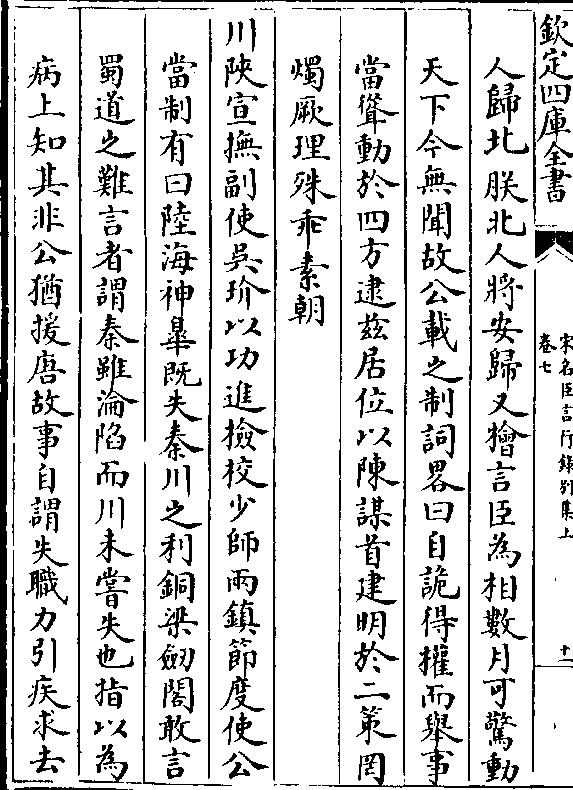 欽定四庫全書
宋名臣言行錄別集上
卷七
十一
人歸北朕北人將安歸又檜言臣為相數月可驚動
天下今無聞故公載之制詞畧曰自詭得權而舉事
當聳動於四方逮兹居位以陳謀首建明於二策罔
燭厥理殊乖素朝
川陝宣撫副使吳玠以功進檢校少師兩鎮節度使公
當制有曰陸海神臯既失秦川之利銅梁劒閣敢言
蜀道之難言者謂秦雖淪陷而川未嘗失也指以為
病上知其非公猶援唐故事自謂失職力引疾求去